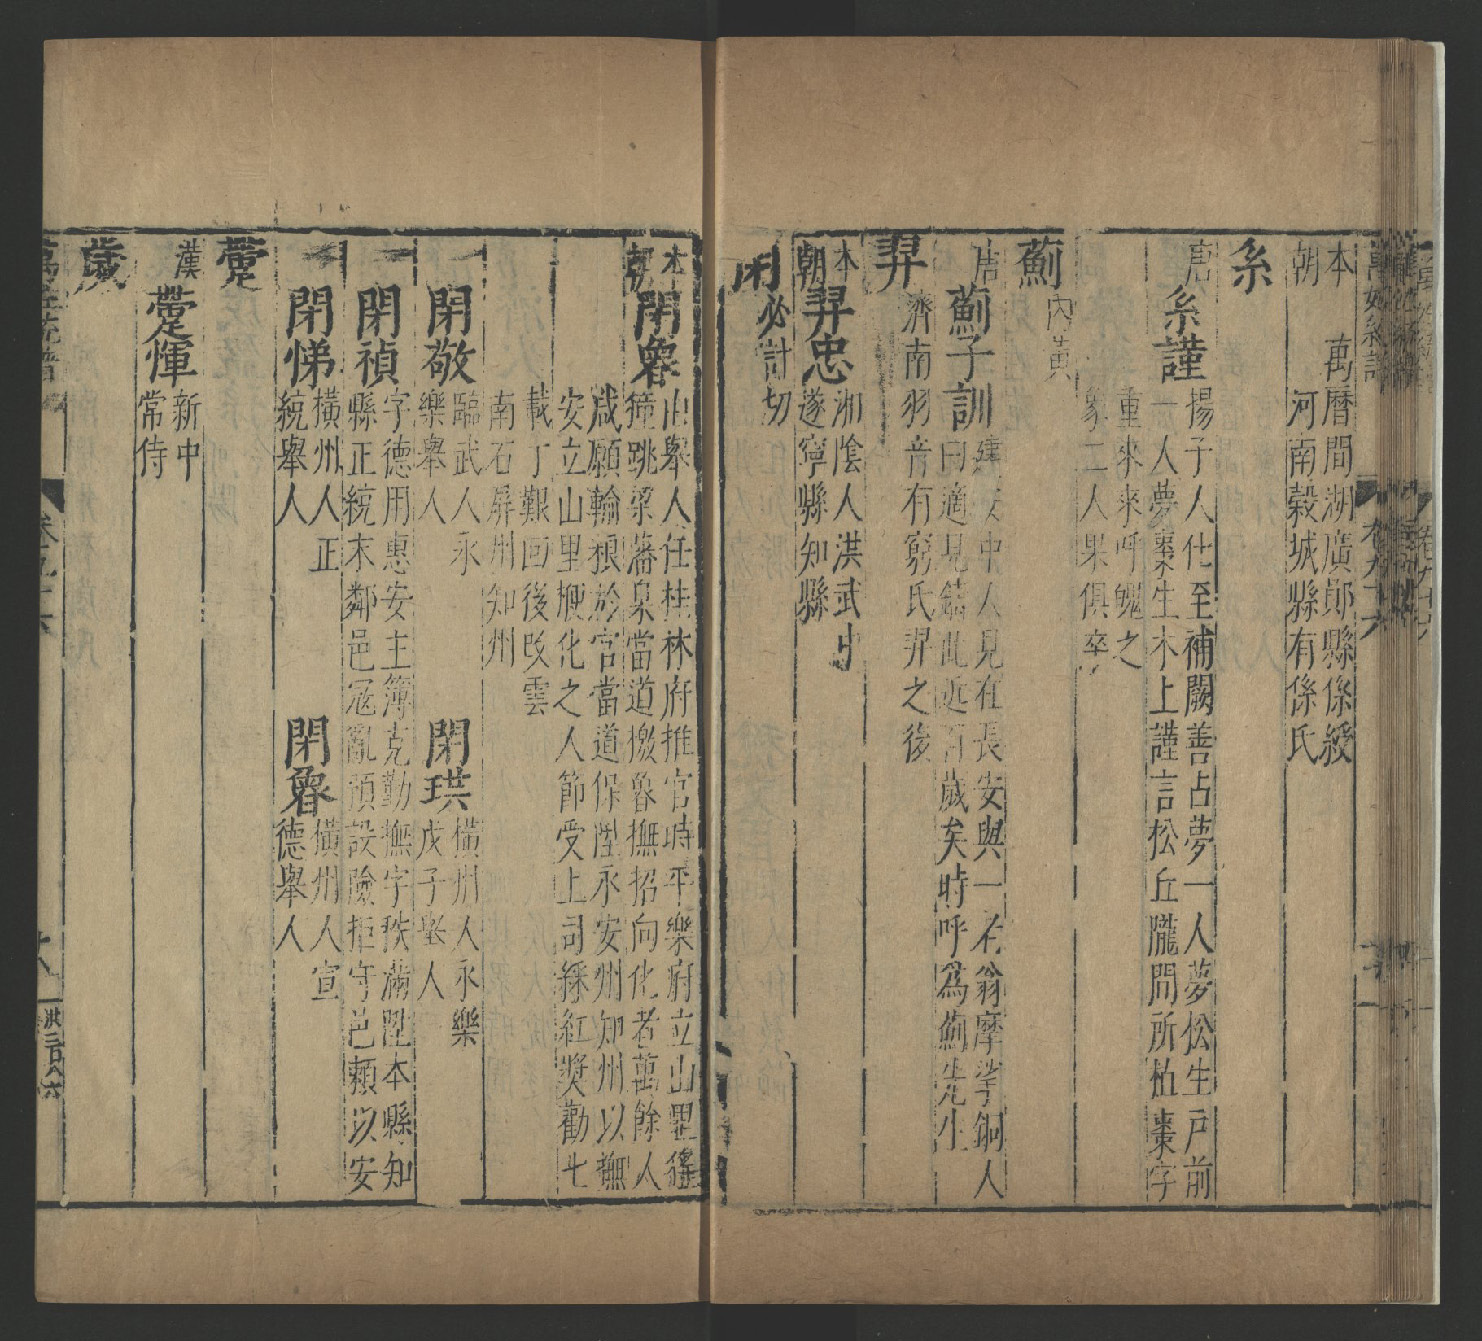 本　萬曆間湖廣鄖縣係綬
朝　河南穀城縣有係氏
糸
唐　糸謹　揚子人仕至補闕善占夢一人夢松生戸前
一人夢棗生木上謹言松丘隴間所植棗字
重來來呼魄之
象二人果俱卒
薊　內黃
唐　薊子訓　建安中人見在長安與一老翁摩挲銅人
曰適見鑄此近百歲矣時呼爲薊先生
羿　濟南羽音有窮氏羿之後
本　羿忠　湘陰人洪武中
朝　遂寧縣知縣
閉　必計切
本　閉魯　由舉人任桂林府推官時平樂府立山里猺
朝　獞跳梁藩臬當道檄魯撫招向化者萬餘人
咸願輸粮於官當道保陞永安州知州以撫
安立山里梗化之人節受上司綵紅奬勸七
載丁艱回後改雲
南石屏州知州
閉敬　臨武人永　閉珙　橫州人永樂
樂舉人　戊子舉人
閉禎　字德用惠安主簿克勤撫字秩滿陞本縣知
縣正統末鄰邑寇亂預設險拒守邑賴以安
閉悌　橫州人正　閉魯　橫州人宣
統舉人　德舉人
躗
漢　躗惲　新中
常侍
歲
萬姓統譜　卷九十六　十八